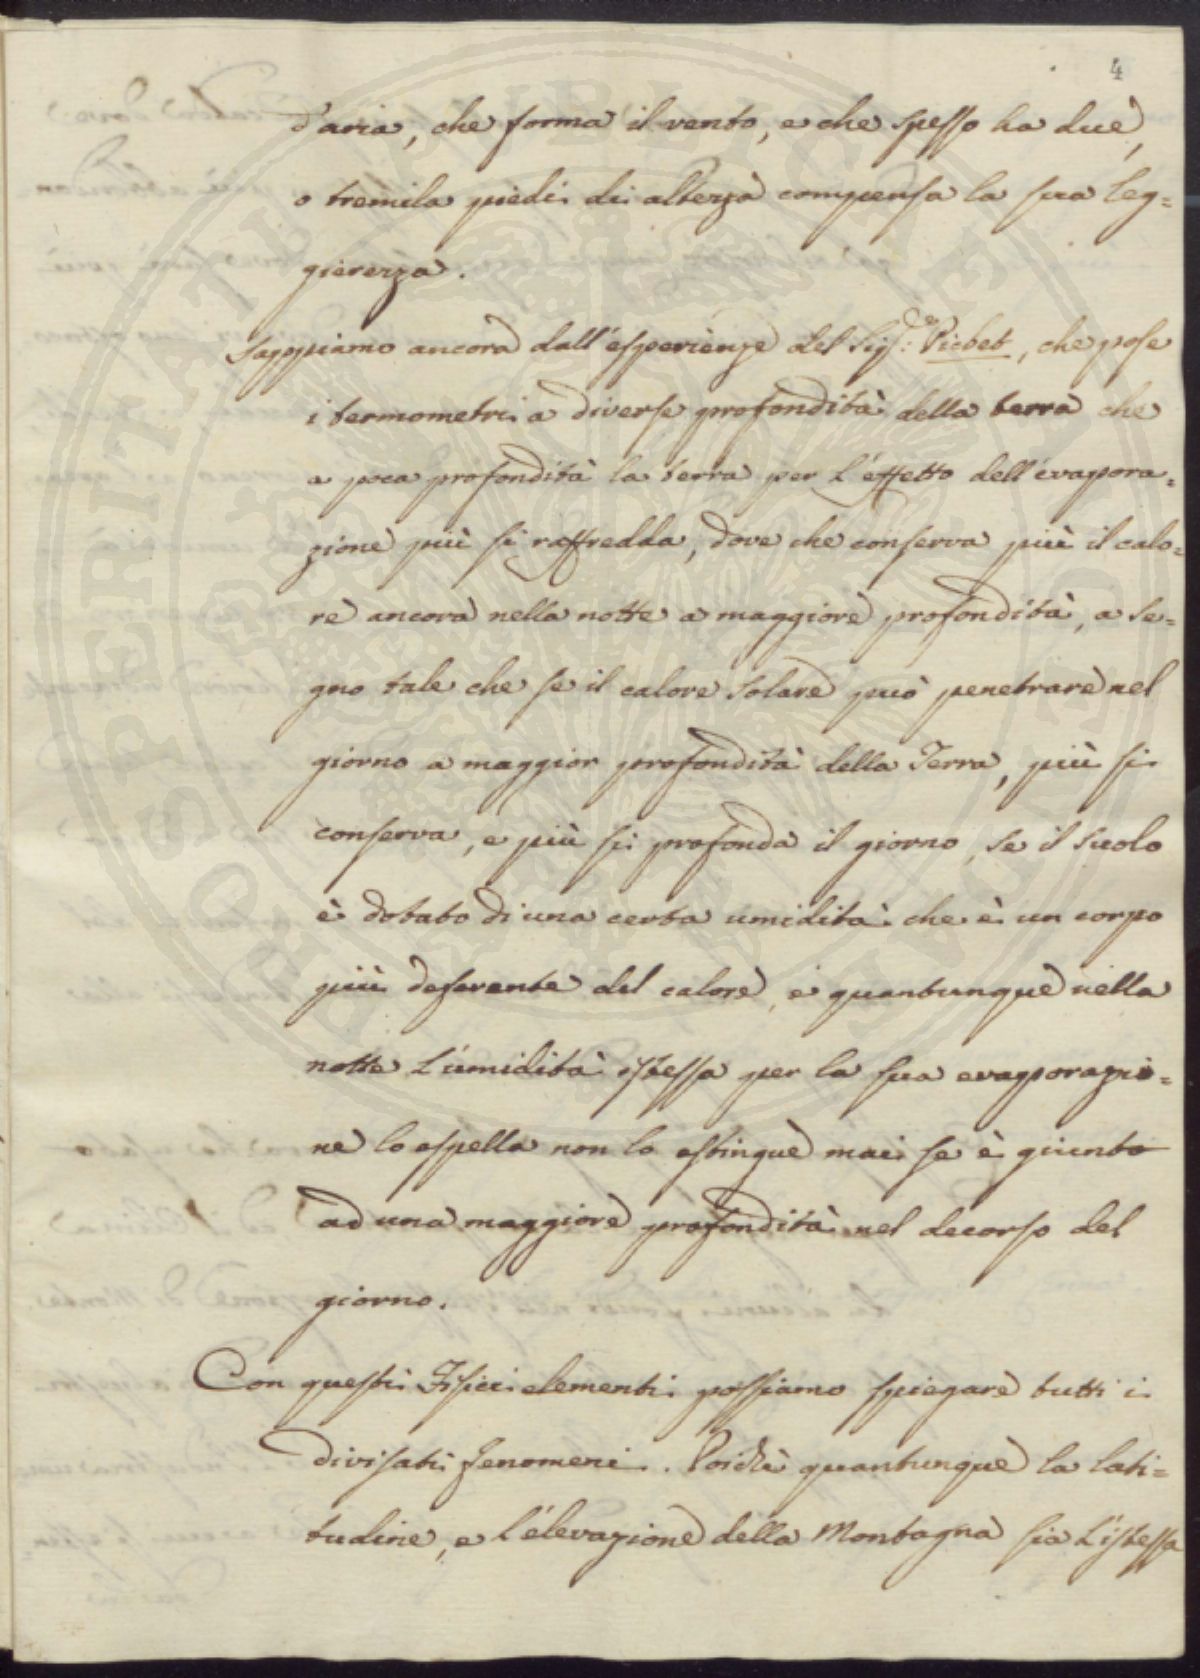 4
d'aria, che forma il vento, e che spesso ha due,
o tremila piedi di altezza compensa la sua leg=
gierezza.
Sappiamo ancora dall'esperienze del Sig.re Pictet, che pose
i termometri a diverse profondità della terra che
a poca profondità la terra per l'effetto dell'evapora=
zione più si raffredda, dove che conserva più il calo=
re ancora nella notte a maggiore profondità, a se=
gno tale che se il calore solare può penetrare nel
giorno a maggior profondità della Terra, più si
conserva, e più si profonda il giorno, se il suolo
è dotato di una certa umidità che è un corpo
più deferente del calore, e quantunque nella
notte l'umidità istessa per la sua evaporazio=
ne lo espella non lo estingue mai se è giunto
ad una maggiore profondità nel decorso del
giorno.
Con questi Fisici elementi possiamo spiegare tutti i
divisati fenomeni. Poichè quantunque la lati=
tudine, e l'elevazione della Montagna sia l'istessa
PROSPERITATI PUBLICAE AUGENDAE